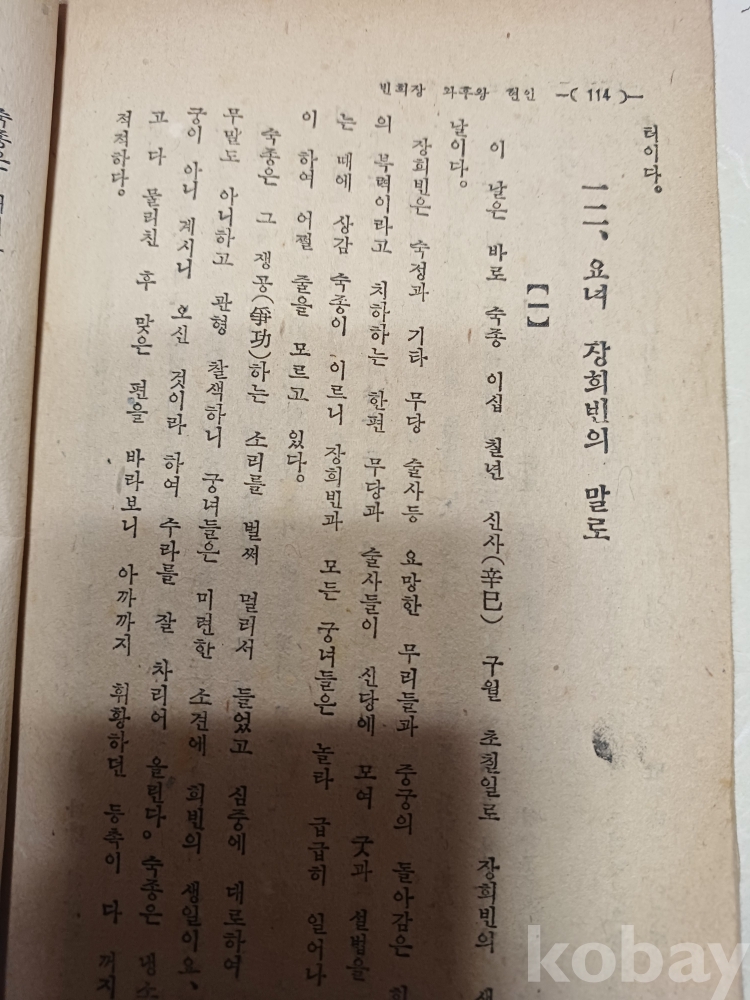 —( 114 )— 인현 왕후와 장희빈
터이다。
一二、요녀 장희빈의 말로
【一】
이 날은 바로 숙종 이십 칠년 신사(辛巳) 구월 초칠일로 장희빈의
날이다。
장희빈은 숙정과 기타 무당 술사등 요망한 무리들과 중궁의 돌아감은
의 복력이라고 치하하는 한편 무당과 술사들이 신당에 모여 굿과 설법을
는 때에 상감 숙종이 이르니 장희빈과 모든 궁녀들은 놀라 급급히 일어나
이 하여 어쩔 줄을 모르고 있다。
숙종은 그 쟁공(爭功)하는 소리를 벌써 멀리서 들었고 심중에 대로하여
무말도 아니하고 관형 찰색하니 궁녀들은 미련한 소견에 희빈의 생일이요、
궁이 아니 계시니 오신 것이라 하여 수라를 잘 차리어 올린다。숙종은 냉소
고 다 물리친 후 맞은 편을 바라보니 아까까지 휘황하던 등촉이 다 꺼지
적적하다。
숙종은
kobay